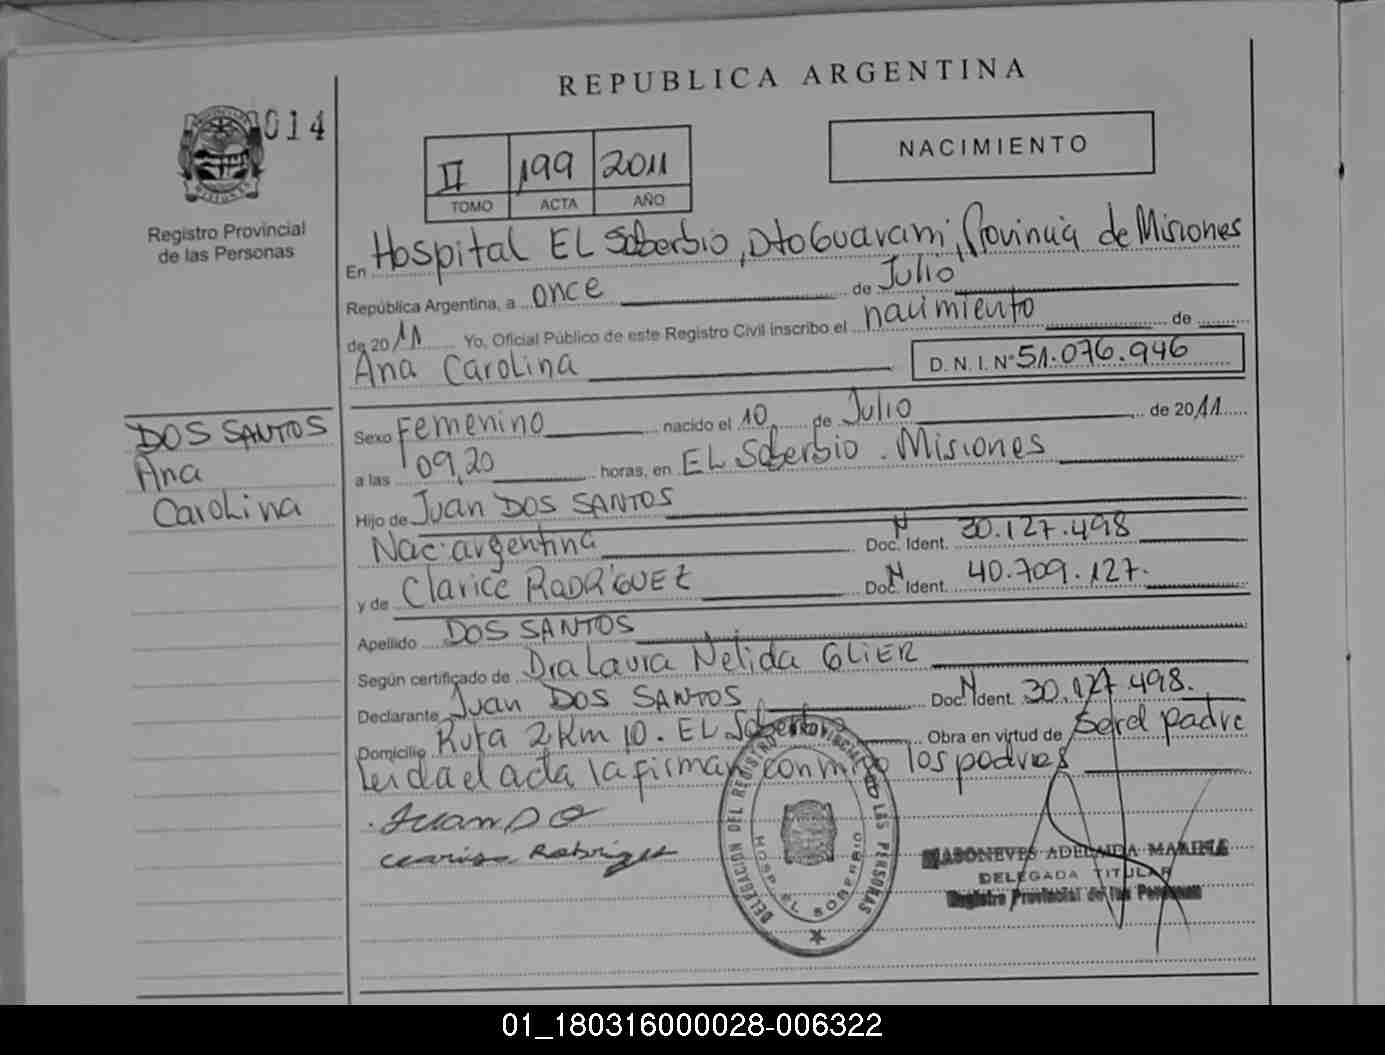 REPUBLICA ARGENTINA
014
II 199 2011
TOMO ACTA AÑO
NACIMIENTO
Registro Provincial
de las Personas
En Hospital EL Soberbio, Dto Guarani, Provincia de Misiones
República Argentina, a once de Julio
de 2011 Yo, Oficial Público de este Registro Civil inscribo el nacimiento de
Ana Carolina D.N.I.Nº 51.076.946
DOS SANTOS
Ana
Carolina
Sexo Femenino nacido el 10 de Julio de 2011
a las 09,20 horas, en EL Soberbio . Misiones
Hijo de Juan DOS SANTOS
Nac. argentina Doc. N Ident. 30.127.498
y de Clarice RODRIGUEZ Doc. N Ident. 40.709.127.
Apellido DOS SANTOS
Según certificado de Dra Laura Nelida GLIER
Declarante Juan DOS SANTOS Doc. N Ident. 30.127.498.
Domicilio Ruta 2 Km 10. EL Soberbio Obra en virtud de Ser el padre
Leida el acta la firman conmigo los padres
Juan D
DELEGACION DEL REGISTRO PROVINCIAL DE LAS PERSONAS
HOSP. EL SOBERBIO
ADELAIDA
DELEGADA TITULAR
Registro Provincial de las Personas
01_180316000028-006322